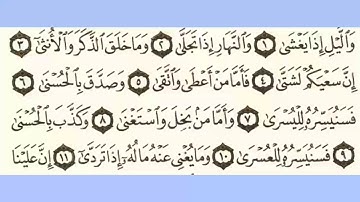 وَاللَّيْلِ إِذَا يَغْشَىٰ ١ وَالنَّهَارِ إِذَا تَجَلَّىٰ ٢ وَمَا خَلَقَ الذَّكَرَ وَالْأُنثَىٰ ٣
إِنَّ سَعْيَكُمْ لَشَتَّىٰ ٤ فَأَمَّا مَنْ أَعْطَىٰ وَاتَّقَىٰ ٥ وَصَدَّقَ بِالْحُسْنَىٰ ٦
فَسَنُيَسِّرُهُ لِلْيُسْرَىٰ ٧ وَأَمَّا مَنْ بَخِلَ وَاسْتَغْنَىٰ ٨ وَكَذَّبَ بِالْحُسْنَىٰ
٩ فَسَنُيَسِّرُهُ لِلْعُسْرَىٰ ١٠ وَمَا يُغْنِي عَنْهُ مَالُهُ إِذَا تَرَدَّىٰ ١١ إِنَّ عَلَيْنَا